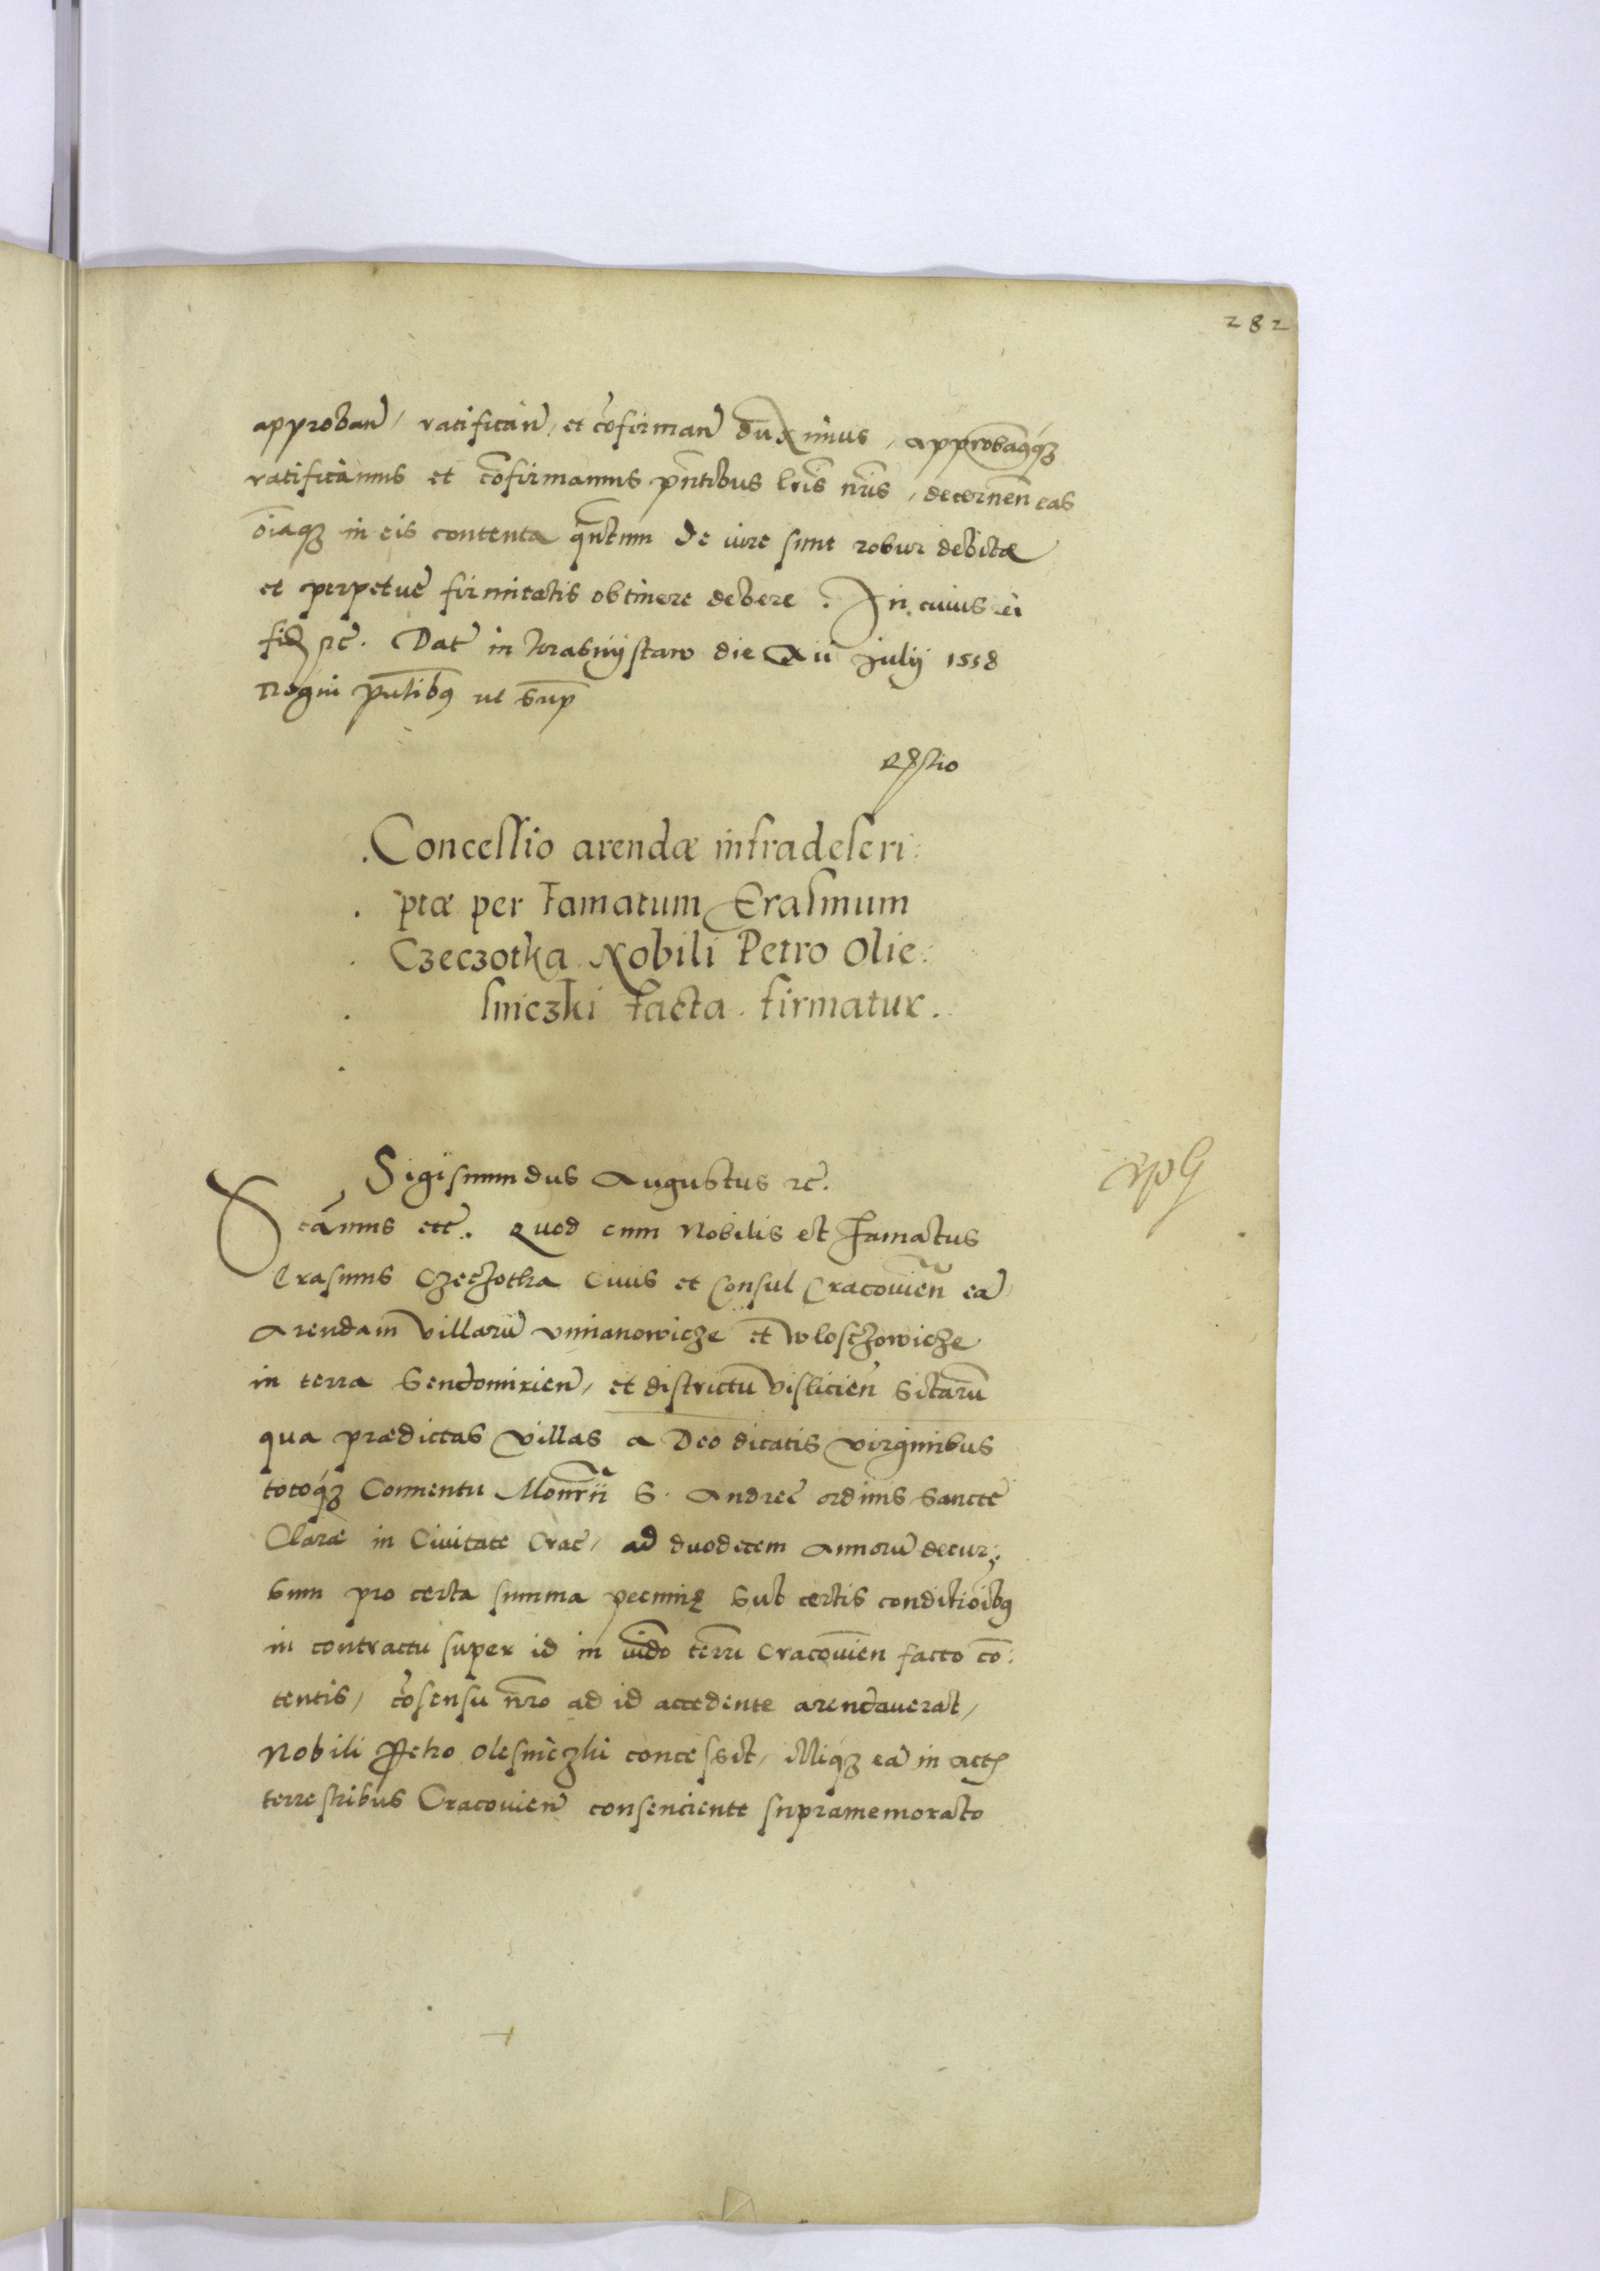 282
approban̄, ratifican̄, et cōfirman̄ duximus, approbam9q3
ratificamus et cōfirmamus pn̄tibus lris nris, decernen̄ eas
oīaq3 in eis contenta qntum de iure sunt robur debitæ
et perpetue firmitatis obtinere debere. In cuius rei
fid rc. Dat in Krasnystaw die xii Julij 1558
Regni pntib9 ut sup
Concessio arendæ infradescri:
ptæ per famatum Erasmum
Czeczotka Nobili Petro Olie:
sniczki facta firmatur.
Sigismundus Augustus rc.
Scamus etc. Quod cum Nobilis et famatus
Erasmus Czeczotka Civis et Consul Cracovien̄ eā
Arendam villarū Vmianowicze et Wloszowicze
in terra Sendomirien̄, et districtu Vislicien̄ sitarū
qua prædictas villas a Deo dicatis virginibus
totoq3 Conventu Monrii S. Andreę ordinis Sancte
Claræ in Civitate Crac, ad duodecem annorū decur:
sum pro certa summa pecunię sub certis conditioīb9
in contractu super id in iudo terri Cracovien̄ facto cō:
tentis, cōsensu nr̄o ad id accedente arendaverat,
Nobili Petro Olesniczki concessit, illiq3 eā in actis
terrestribus Cracovien̄ consenciente supramemorato